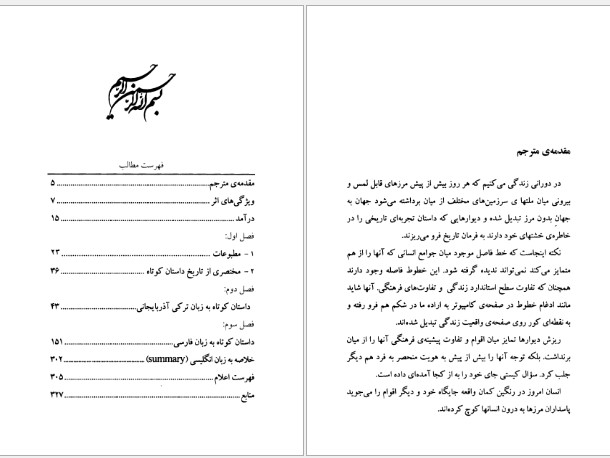 بسم الله الرحمن الرحیم
فهرست مطالب
مقدمه‌ی مترجم ..... ۵
ویژگی‌های اثر ..... ۷
درآمد ..... ۱۵
فصل اول:
۱ - مطبوعات ..... ۲۳
۲ - مختصری از تاریخ داستان کوتاه ..... ۳۶
فصل دوم:
داستان کوتاه به زبان ترکی آذربایجانی ..... ۴۳
فصل سوم:
داستان کوتاه به زبان فارسی ..... ۱۵۱
خلاصه به زبان انگلیسی (summary) ..... ۳۰۲
فهرست اعلام ..... ۳۰۵
منابع ..... ۳۲۷
مقدمه‌ی مترجم
در دورانی زندگی می‌کنیم که هر روز بیش از پیش مرزهای قابل لمس و
بیرونی میان ملتها ی سرزمین‌های مختلف از میان برداشته می‌شود جهان به
جهان بدون مرز تبدیل شده و دیوارهایی که داستان تجربه‌ای تاریخی را در
خاطره‌ی خشتهای خود دارند به فرمان تاریخ فرو می‌ریزند.
نکته اینجاست که خط فاصل موجود میان جوامع انسانی که آنها را از هم
متمایز می‌کند نمی‌تواند ندیده گرفته شود. این خطوط فاصله وجود دارند
همچنان که تفاوت سطح استاندارد زندگی و تفاوت‌های فرهنگی. آنها شاید
مانند ادغام خطوط در صفحه‌ی کامپیوتر به اراده ما در شکم هم فرو رفته و
به نقطه‌ای کور روی صفحه‌ی واقعیت زندگی تبدیل شده‌اند.
ریزش دیوارها تمایز میان اقوام و تفاوت پیشینه‌ی فرهنگی آنها را از میان
برنداشت. بلکه توجه آنها را بیش از پیش به هویت منحصر به فرد هم دیگر
جلب کرد. سؤال کیستی جای خود را به از کجا آمده‌ای داده است.
انسان امروز در رنگین کمان واقعه جایگاه خود و دیگر اقوام را می‌جوید
پاسداران مرزها به درون انسانها کوچ کرده‌اند.